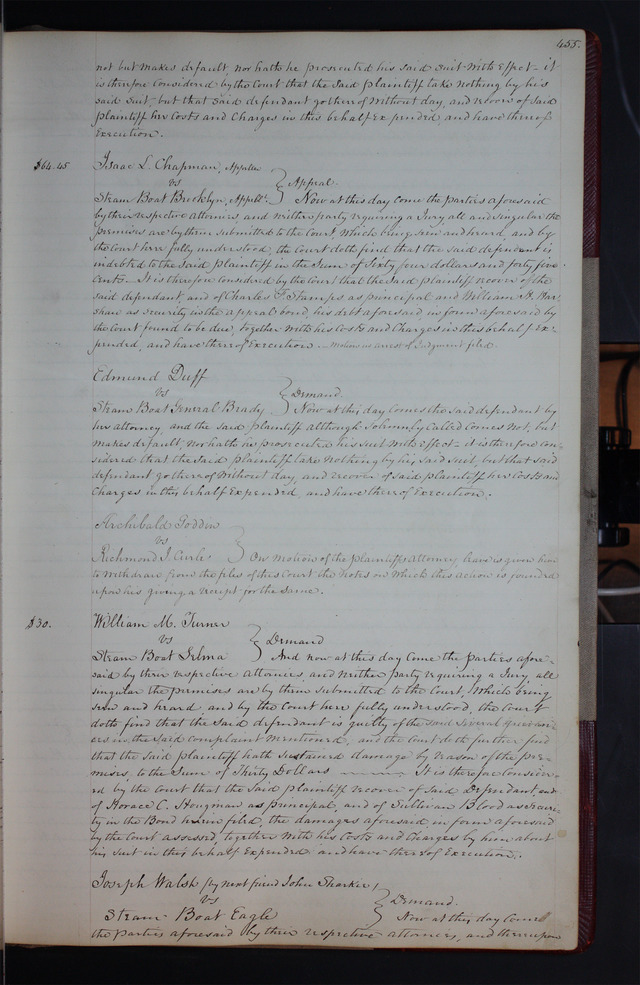 455.
not but makes default, nor hath he prosecuted his said suit with effect – it
is therefore considered by the Court that the said plaintiff take nothing by his
said suit, but that said defendant go thereof without day, and recover of said
plaintiff her Costs and Charges in this behalf expended, and have thereof
Execution.
$64.45. Isaac L. Chapman, Appellee
vs } Appeal.
Steam Boat Brooklyn, Appllt. Now at this day come the parties aforesaid
by their respective attornies, and neither party requiring a Jury all and singular the
premises are by them submitted to the Court, which being seen and heard, and by
the Court here fully understood, the Court doth find that the said defendant is
indebted to the said plaintiff in the Sum of Sixty four dollars and forty five
Cents – It is therefore Considered by the Court that the said plaintiff recover of the
said defendant, and of Charles F. Stamps as principal and William H.
as security in the appeal bond, his debt aforesaid in form aforesaid by
the Court found to be due, together with his Costs and Charges in this behalf ex-
pended, and have thereof Execution. – Motion in arrest of Judgment filed.
Edmund Duff
vs } Demand.
Steam Boat General Brady Now at this day comes the said defendant by
her attorney, and the said plaintiff although solemnly Called Comes not, but
makes default, nor hath he prosecuted his suit with effect – it is therefore con-
sidered that the said plaintiff take nothing by his said suit, but that said
defendant go thereof without day, and recover of said plaintiff her Costs and
Charges in this behalf Expended, and have thereof Execution.
Archibald Goddin
vs }
Richmond J. Curle On motion of the plaintiffs attorney, leave is given him
to withdraw from the files of this Court the notes on which this action is founded
upon his giving a receipt for the same.
$30. William M. Turner
vs } Demand
Steam Boat Selma And now at this day Come the Parties afore-
said by their respective attornies, and neither party requiring a Jury, all
singular the premises are by them submitted to the Court, which being
seen and heard, and by the Court here fully understood, the Court
doth find that the said defendant is guilty of the said several grievan-
ces in the said complaint mentioned, and the Court doth further find
that the said plaintiff hath sustained damage by reason of the pre-
mises, to the Sum of Thirty Dollars It is therefore consider-
ed by the Court that the said plaintiff recover of said Defendant, and
of Horace C. as principal, and of Sullivan Blood as securi-
ty in the Bond herein filed, the damages aforesaid, in form aforesaid
by the Court assessed, together with his Costs and Charges by him about
his suit in this behalf Expended and have thereof Execution.
Joseph Walsh (by next friend John
vs } Demand.
Steam Boat Eagle Now at this day Come
the Parties aforesaid by their respective attornies, and thereupon